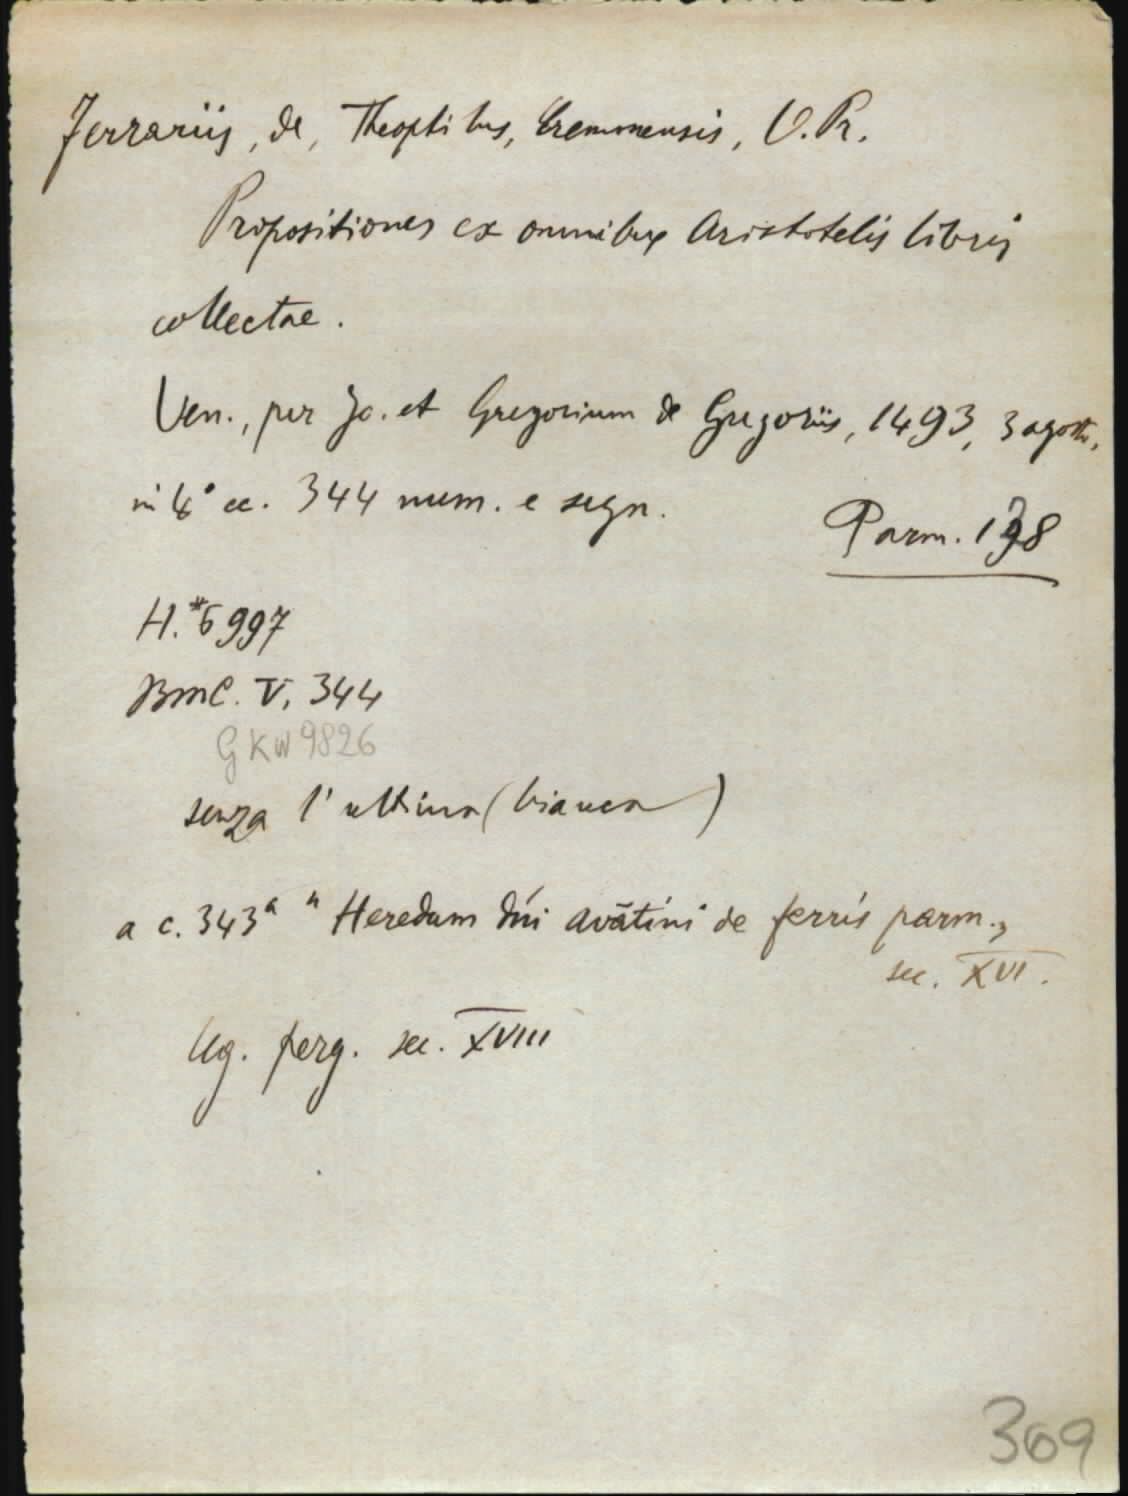 Ferrariis, de, Theophilus, Cremonensis, O. Pr.
Propositiones ex omnibus Aristotelis libris
collectae.
Ven., per Jo. et Gregorium de Gregoriis, 1493, 3 agosto,
in 4° cc. 344 num. e segn.
Parm. 198
H.*6997
BMC. V, 344
GKW 9826
senza l'ultima (bianca)
a c. 343ᵃ " Heredum dñi avãtini de ferris parm.,
sec. XVI.
Leg. perg. sec. XVIII
369